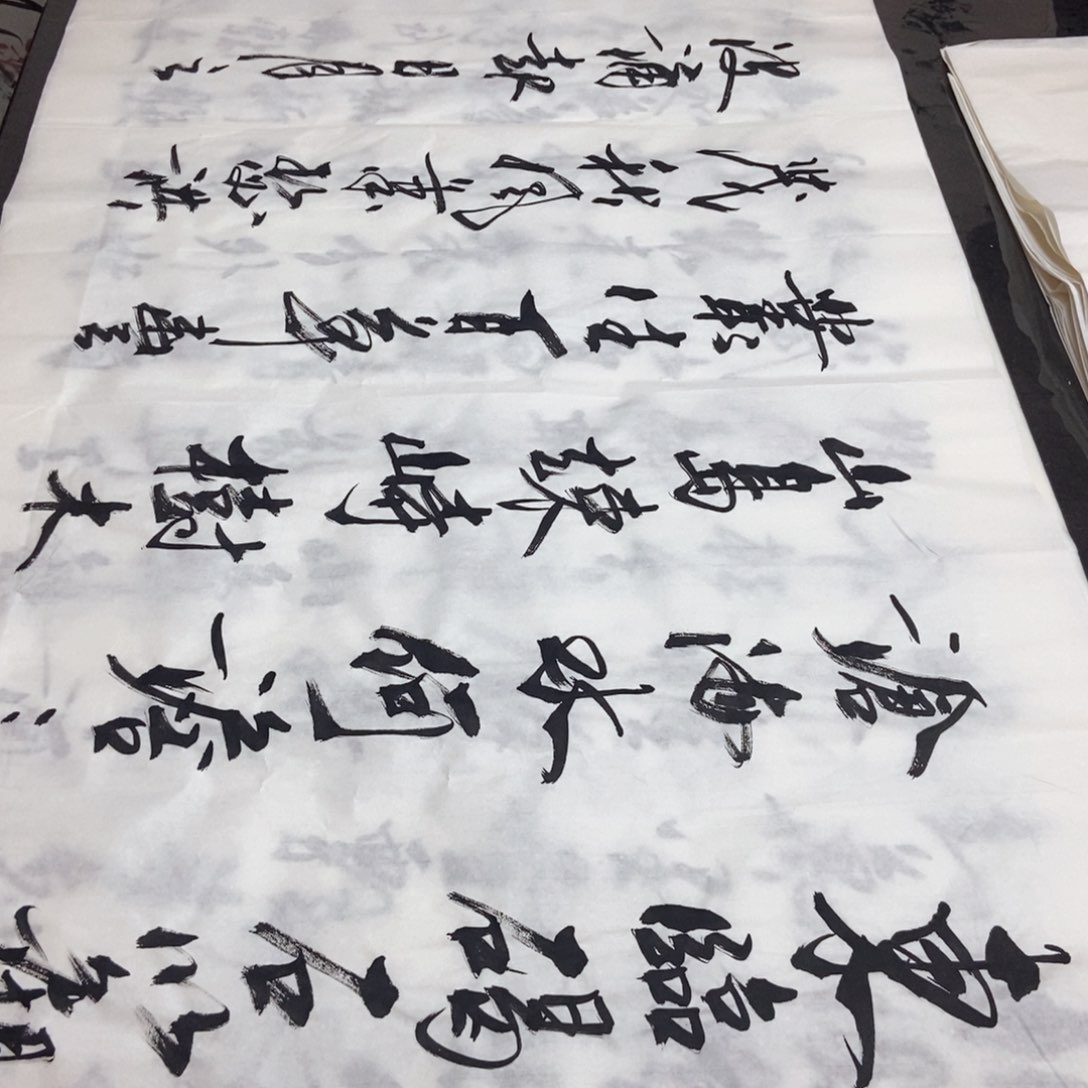 東臨碣石以觀
滄海水何澹〻
山島竦峙樹木
叢生百草豐
茂秋風蕭瑟洪
波涌起日月之